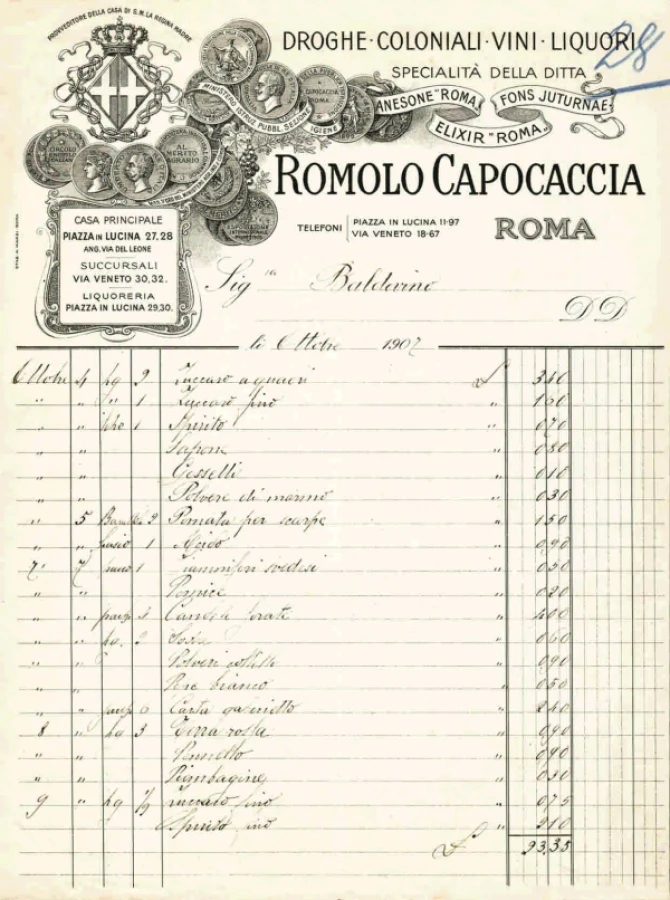 PROVVEDITORE DELLA CASA DI S.M. LA REGINA MADRE
28
DROGHE · COLONIALI · VINI · LIQUORI
SPECIALITÀ DELLA DITTA
ANESONE "ROMA" FONS JUTURNAE
ELIXIR "ROMA"
MINISTERO ISTRUZ. PUBBL. SEZIONE IGIENE
CAPOCACCIA ROMA
AL MERITO AGRARIO
ROMOLO CAPOCACCIA
ROMA
TELEFONI PIAZZA IN LUCINA 11-97
VIA VENETO 18-67
CASA PRINCIPALE
PIAZZA IN LUCINA 27.28
ANG. VIA DEL LEONE
SUCCURSALI
VIA VENETO 30,32.
LIQUORERIA
PIAZZA IN LUCINA 29,30.
Sig Balderino
DD
li Ottobre 1907
Ottobre 4 kg 2 £ 3.40
" " " 1 Zuccaro fino " 1.60
" " 1 Spirito " 0.70
" " Sapone " 0.80
" " Gesselli " 0.10
" " Polvere di marmo " 0.30
" 5 2 Pomata per scarpe " 1.50
" " 1 Acido " 0.90
" 7 1 Fiammiferi svedesi " 0.50
" " Vernice " 0.20
" " 4 Candele forate " 4.00
" " kg. 2 Soda " 0.60
" " Polveri " 0.90
" " bianco " 0.50
" " 6 Carta " 2.40
8 " kg 3 Terra rossa " 0.90
" " Pennello " 0.90
" " Piombagine " 0.30
9 " kg ½ Zuccaro fino " 0.75
Spirito vino " 2.10
£ 23.35